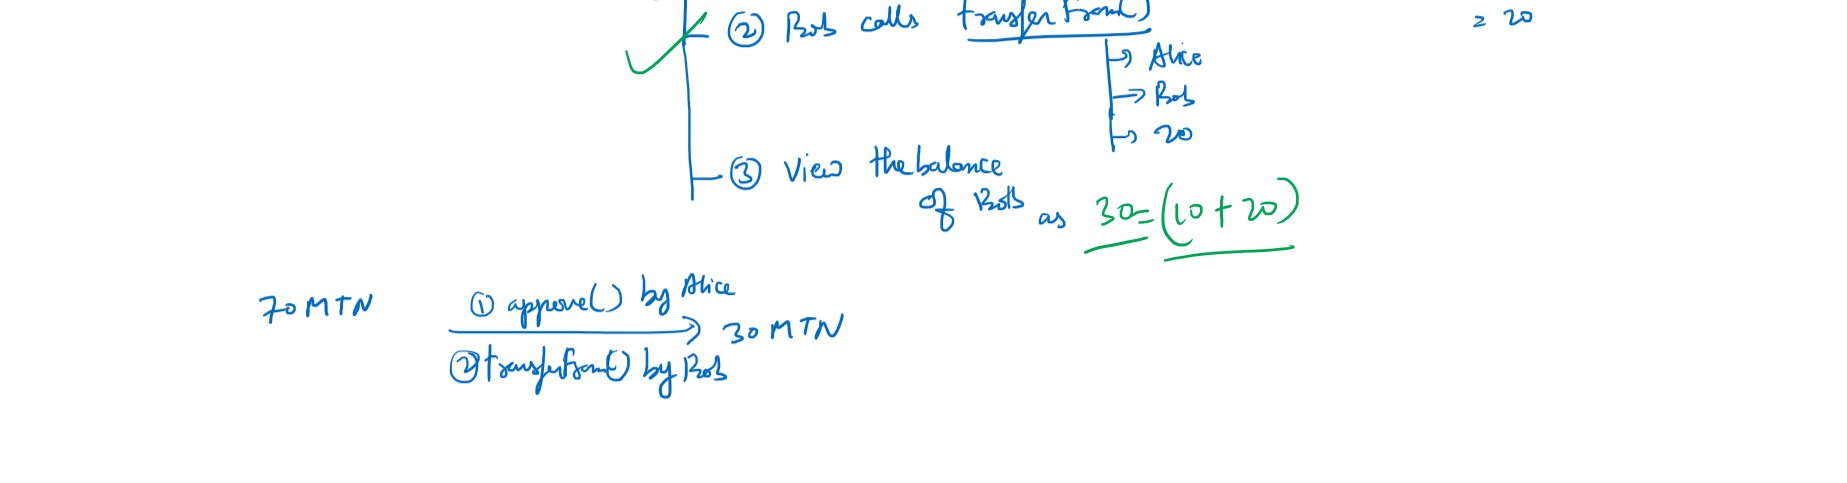 ② Bob calls transferFrom() = 20
→ Alice
→ Bob
→ 20
③ View the balance
of Bob as 30=(10+20)
70 MTN ① approve() by Alice
→ 30 MTN
② transferFrom() by Bob